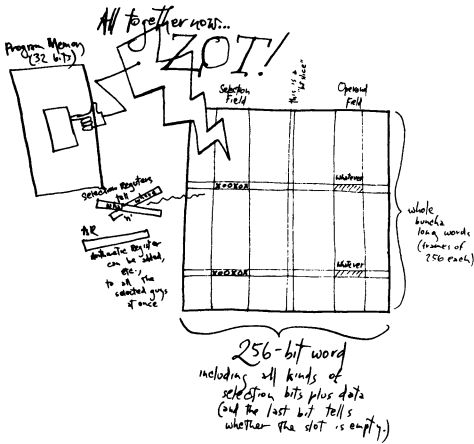 All together now...
ZOT!
Program Memory
(32 bits)
Selection
Field
this is a
"bit slice"
Operand
Field
whatever
XOOXOX
Selection Registers
tell
what
where
'n'
AR
Arithmetic Register
can be added,
etc.,
to all the
selected guys
at once
whatever
XOOXOX
whole
buncha
long words
(frames of
256 each)
256-bit word
including all kinds of
selection bits plus data
(and the last bit tells
whether the slot is empty.)